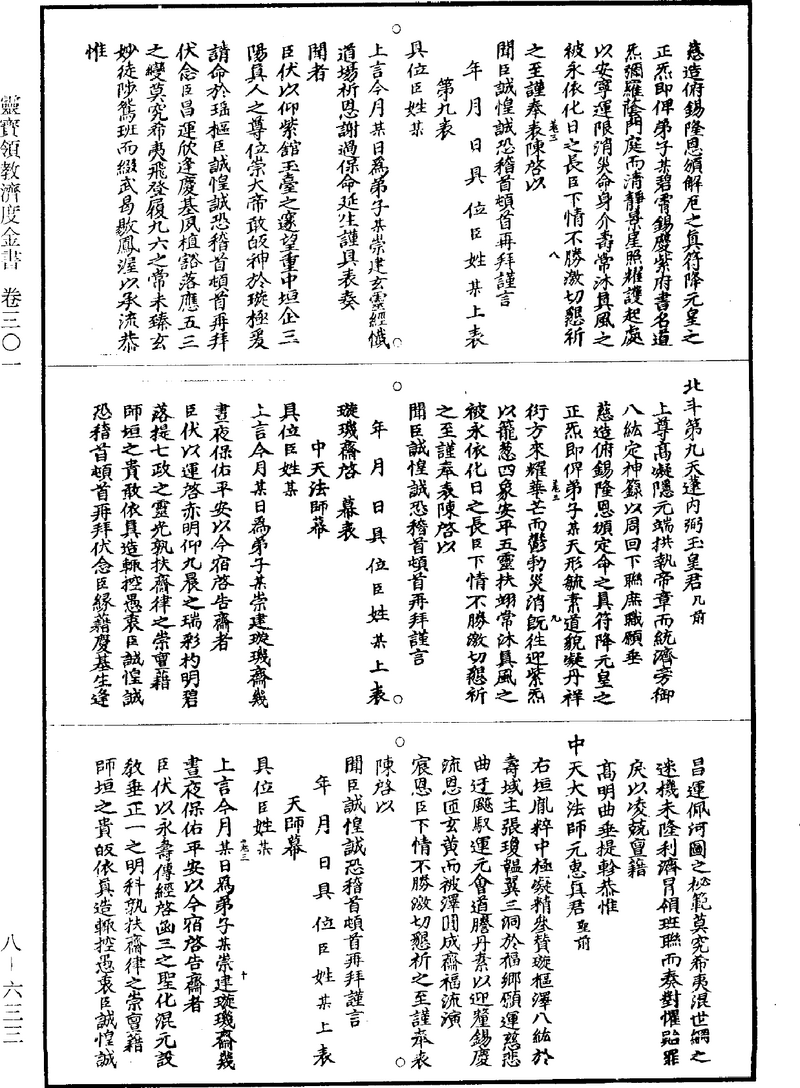 慈造俯錫隆恩頒解厄之真符降元皇之
正炁即俾弟子某碧霄錫慶紫府書名道
炁彌羅蔭門庭而清靜景星照耀護起處
以安寧運限消災命身介壽常沐真風之
被永依化日之長臣下情不勝激切懇祈
之至謹奉表陳啓以
聞臣誠惶誠恐稽首頓首再拜謹言
年月日具位臣姓某上表
第九表
具位臣姓某
上言今月某日為弟子某崇建玄靈經懺
道場祈恩謝過保命延生謹具表奏
聞者
臣伏以仰紫館玉臺之邃望重中垣企三
陽真人之尊位崇大帝敢皈神於璇極爰
請命於瑶樞臣誠惶誠恐稽首頓首再拜
伏念臣昌運欣逢慶基夙植豁落應五三
之變莫究希夷飛登履九六之常未臻玄
妙徒陟鵷班而綴武曷歇鳳渥以承流恭
惟
北斗第九天蓬内弼玉皇君几前
上尊高凝隱元端拱執帝章而統濟旁御
八紘定神籙以周回下聯庶職願垂
慈造俯錫隆恩頒定命之真符降元皇之
正炁即俾弟子某天形毓素道貌凝丹祥
衍方來耀華芒而鬱勃災消既往迎紫炁
以籠葱四象安平五靈扶翊常沐真風之
被永依化日之長臣下情不勝激切懇祈
之至謹奉表陳啓以
聞臣誠惶誠恐稽首頓首再拜謹言
年月日具位臣姓某上表
璇璣齋啓幕表
中天法師幕
具位臣姓某
上言今月某日為弟子某崇建璇璣齋幾
晝夜保佑平安以今宿啓告齋者
臣伏以運啓赤明仰九晨之瑞彩杓明碧
落提七政之靈光孰扶齋律之崇實藉
師垣之貴敢依真造輙控愚衷臣誠惶誠
恐稽首頓首再拜伏念臣緣藉慶基生逢
昌運佩河圖之祕範莫究希夷混世網之
迷機未隆利濟冐領班聯而奏對懼貽罪
戾以凌兢實藉
高明曲垂提軫恭惟
中天大法師元惠真君聖前
右垣胤粹中極凝精叅賛璇樞澤八紘於
壽域主張瓊韞翼三洞於福鄉願運慈悲
曲迂飈馭運元會道謄丹素以迎釐錫慶
流恩匝玄黄而被澤開成齋福流演
宸恩臣下情不勝激切懇祈之至謹奉表
陳啓以
聞臣誠惶誠恐稽首頓首再拜謹言
年月日具位臣姓某上表
天師幕
具位臣姓某
上言今月某日為弟子某崇建璇璣齋幾
晝夜保佑平安以今宿啓告齋者
臣伏以永壽傳經啓函三之聖化混元設
教垂正一之明科孰扶齋律之崇實藉
師垣之貴皈依真造輙控愚衷臣誠惶誠
靈寶領教濟度金書　卷三〇一
八-六三三